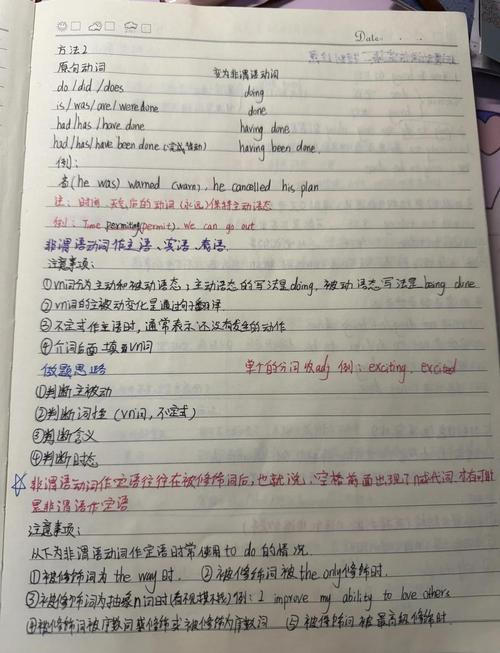 Date:
方法2
原句动词 变为非谓语动词
do/did/does doing
is/was/are/were done done
had/has/have done having done
had/has/have been done (完成被动) having been done.
例:
(he was) warned (warn), he cancelled his plan
注: 时间、天气后的动词(永远)保持主动语态
例: Time permiting(permit), we can go out
非谓语动词作主语、宾语、表语.
注意事项:
①ving词分为主动和被动语态; 主动语态的写法是doing, 被动语态写法是being done
②ving词的主被动变化是通过句子翻译
③不定式作主语时, 通常表示还没有发生的动作
④介词后面填ving词
做题思路 单个的分词做adj 例: exciting, excited
①判断主被动
②判断词性(ving词, 不定式)
③判断含义
④判断时态
非谓语动词作定语往往在被修饰词后, 也就说, 空格前面出现了n或代词, 才有可能
是非谓语作定语
注意事项:
以下为非谓语动词作定语时常使用to do的情况.
①被修饰词为the way时. ②被修饰词被the only修饰时.
③被修饰词为抽象n词时(看不见摸不找)例: I improve my ability to love others
④被修饰词被序数词修饰或被修饰为序数词 ⑤被修饰词被最高级修饰时.